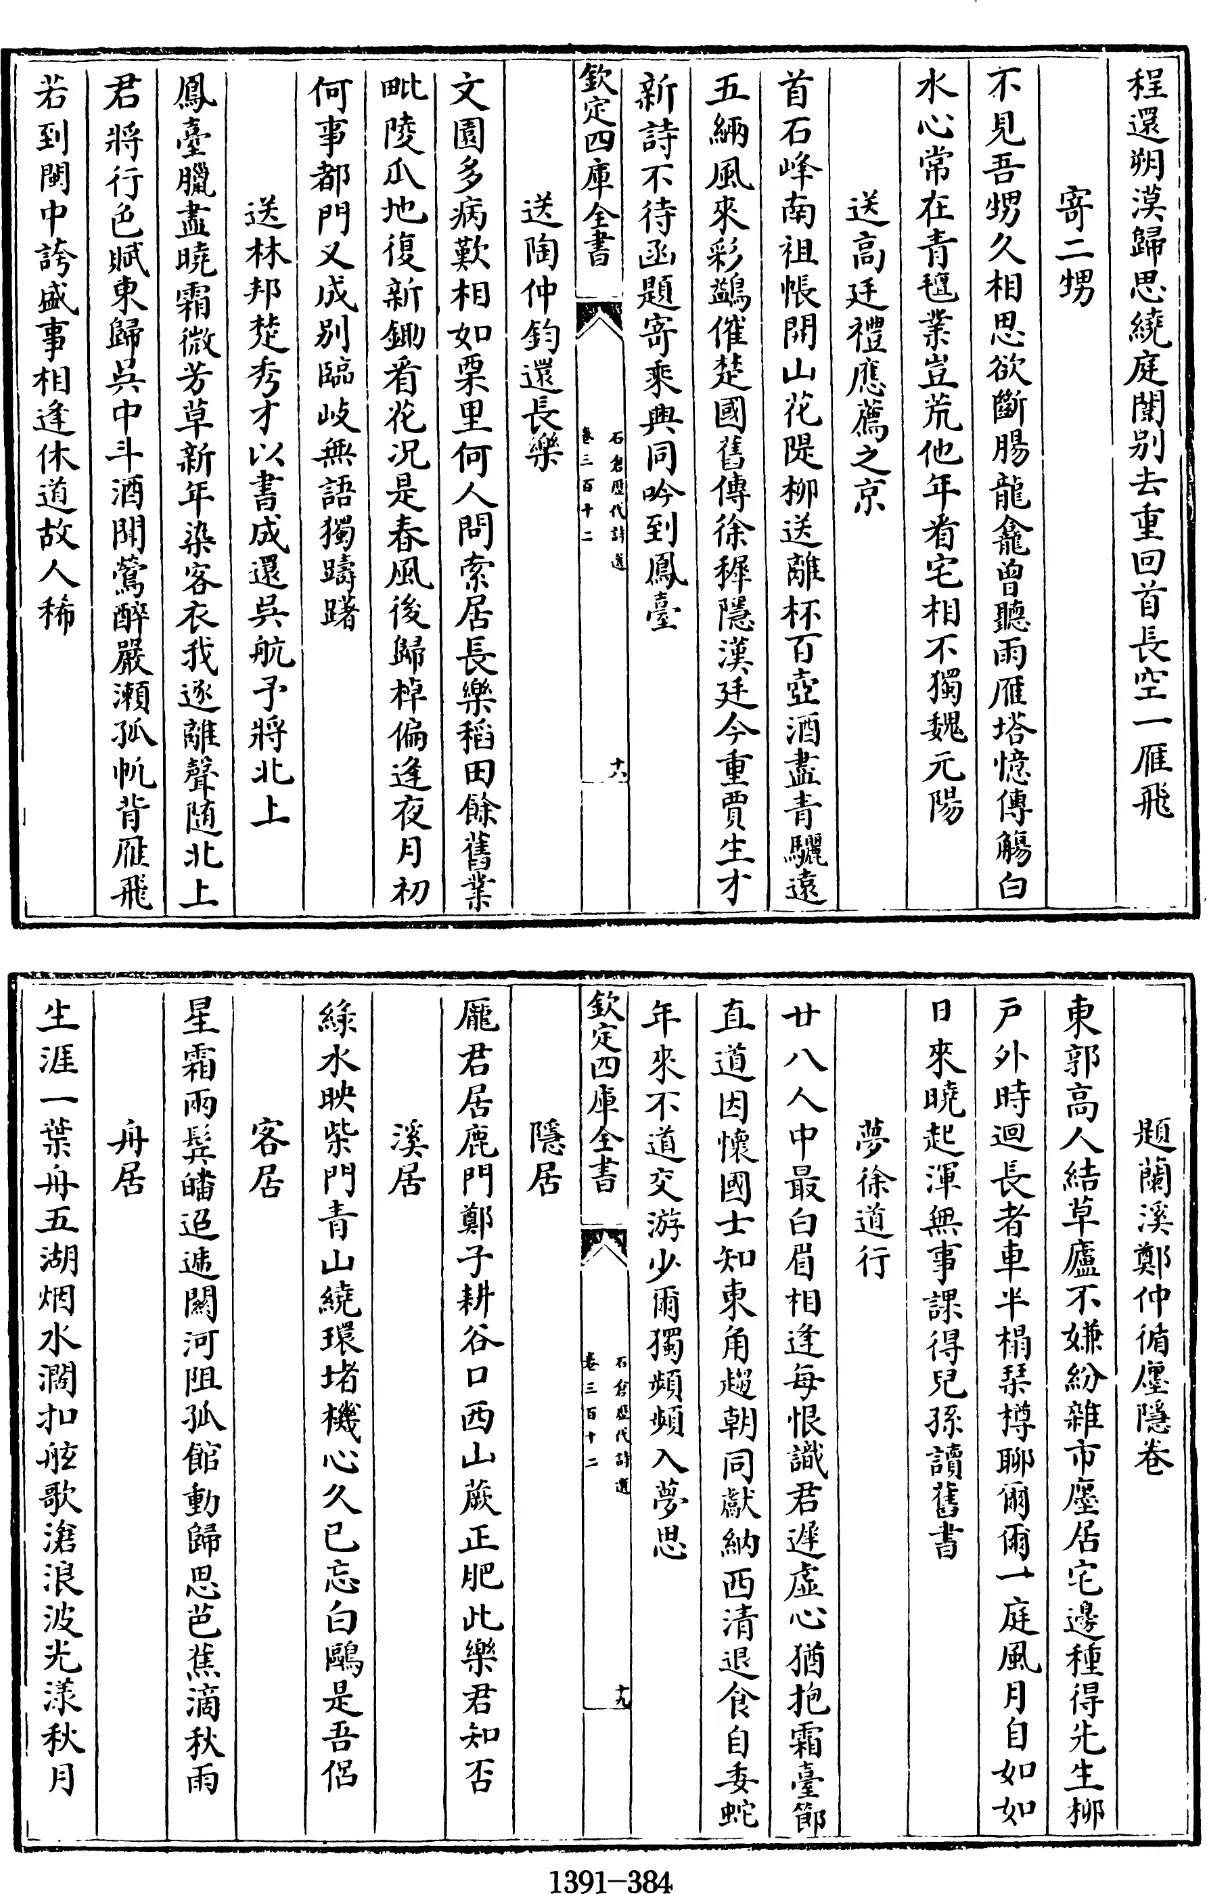 程還朔漠歸思繞庭闈别去重回首長空一雁飛
寄二甥
不見吾甥久相思欲斷腸龍龕曾聽雨雁塔憶傳觴白
水心常在青氊業豈荒他年看宅相不獨魏元陽
送高廷禮應薦之京
首石峰南祖帳開山花隄柳送離杯百壺酒盡青驪遠
五緉風來彩鷁催楚國舊傳徐穉隱漢廷今重賈生才
新詩不待函題寄乘興同吟到鳳臺
欽定四庫全書
石倉歴代詩選
卷三百十二
十八
送陶仲鈞還長樂
文園多病歎相如栗里何人問索居長樂稻田餘舊業
毗陵瓜地復新鋤看花況是春風後歸棹偏逢夜月初
何事都門又成别臨岐無語獨躊躇
送林邦楚秀才以書成還吳航予將北上
鳳臺臘盡曉霜微芳草新年染客衣我逐離聲随北上
君將行色賦東歸吳中斗酒聞鶯醉嚴瀬孤帆背雁飛
若到閩中誇盛事相逢休道故人稀
題蘭溪鄭仲循廛隱卷
東郭高人結草廬不嫌紛雜市廛居宅邊種得先生柳
戸外時迴長者車半榻琹樽聊爾爾一庭風月自如如
日來曉起渾無事課得兒孫讀舊書
夢徐道行
廿八人中最白眉相逢每恨識君遲虛心猶抱霜臺節
直道因懷國士知東角趨朝同獻納西清退食自委蛇
年來不道交游少爾獨頻頻入夢思
欽定四庫全書
石倉歴代詩選
卷三百十二
十九
隱居
龐君居鹿門鄭子耕谷口西山蕨正肥此樂君知否
溪居
綠水映柴門青山繞環堵機心久已忘白鷗是吾侣
客居
星霜兩鬂皤迢遞闗河阻孤館動歸思芭蕉滴秋雨
舟居
生涯一葉舟五湖烟水濶扣舷歌滄浪波光漾秋月
1391-384